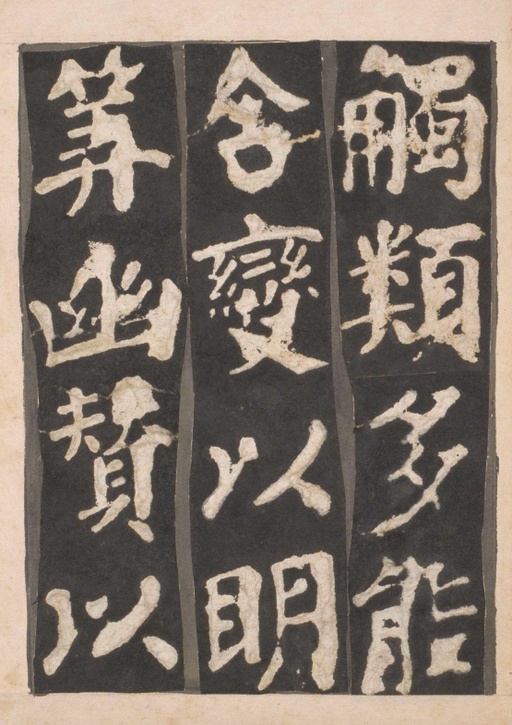 觸類多能
合變以明
筭幽贊以